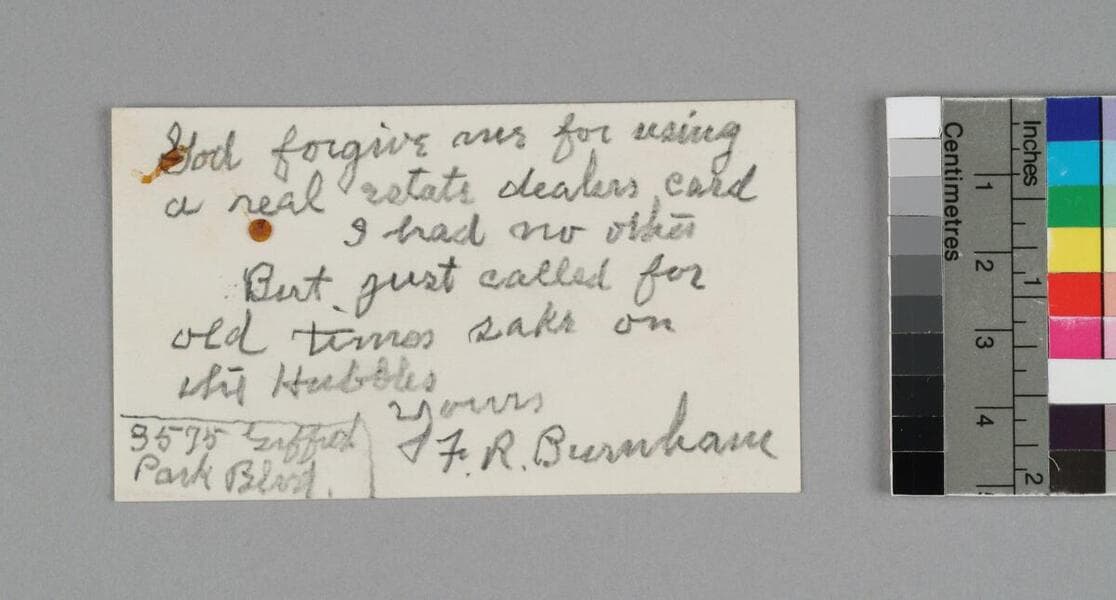 God forgive me for using
a real estate dealers card
I had no other
But just called for
old times sake on
the Hubbles
Yours
F. R. Burnham
3575
Park Blvd.
Centimetres
1
2
3
4
Inches
1
2